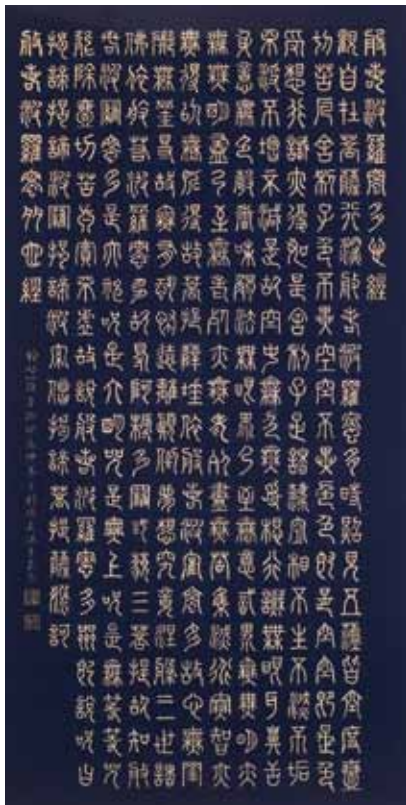 般若波羅密多心經
觀自在菩薩行深般若波羅密多時照見五蘊皆空度壹
切苦厄舍利子色不異空空不異色色即是空空即是色
受想行識亦復如是舍利子是諸法空相不生不滅不垢
不淨不增不減是故空中無色無受想行識無眼耳鼻舌
身意無色聲香味觸法無眼界乃至無意識界無無明亦
無無明盡乃至無老死亦無老死盡無苦集滅道無智亦
無得以無所得故菩提薩埵依般若波羅密多故心無罣
礙無罣礙故無有恐怖遠離顛倒夢想究竟涅槃三世諸
佛依般若波羅密多故得阿耨多羅三藐三菩提故知般
若波羅密多是大神咒是大明咒是無上咒是無等等咒
能除壹切苦真實不虛故說般若波羅密多咒即說咒曰
揭諦揭諦波羅揭諦波羅僧揭諦菩提薩婆訶
般若波羅密多心經